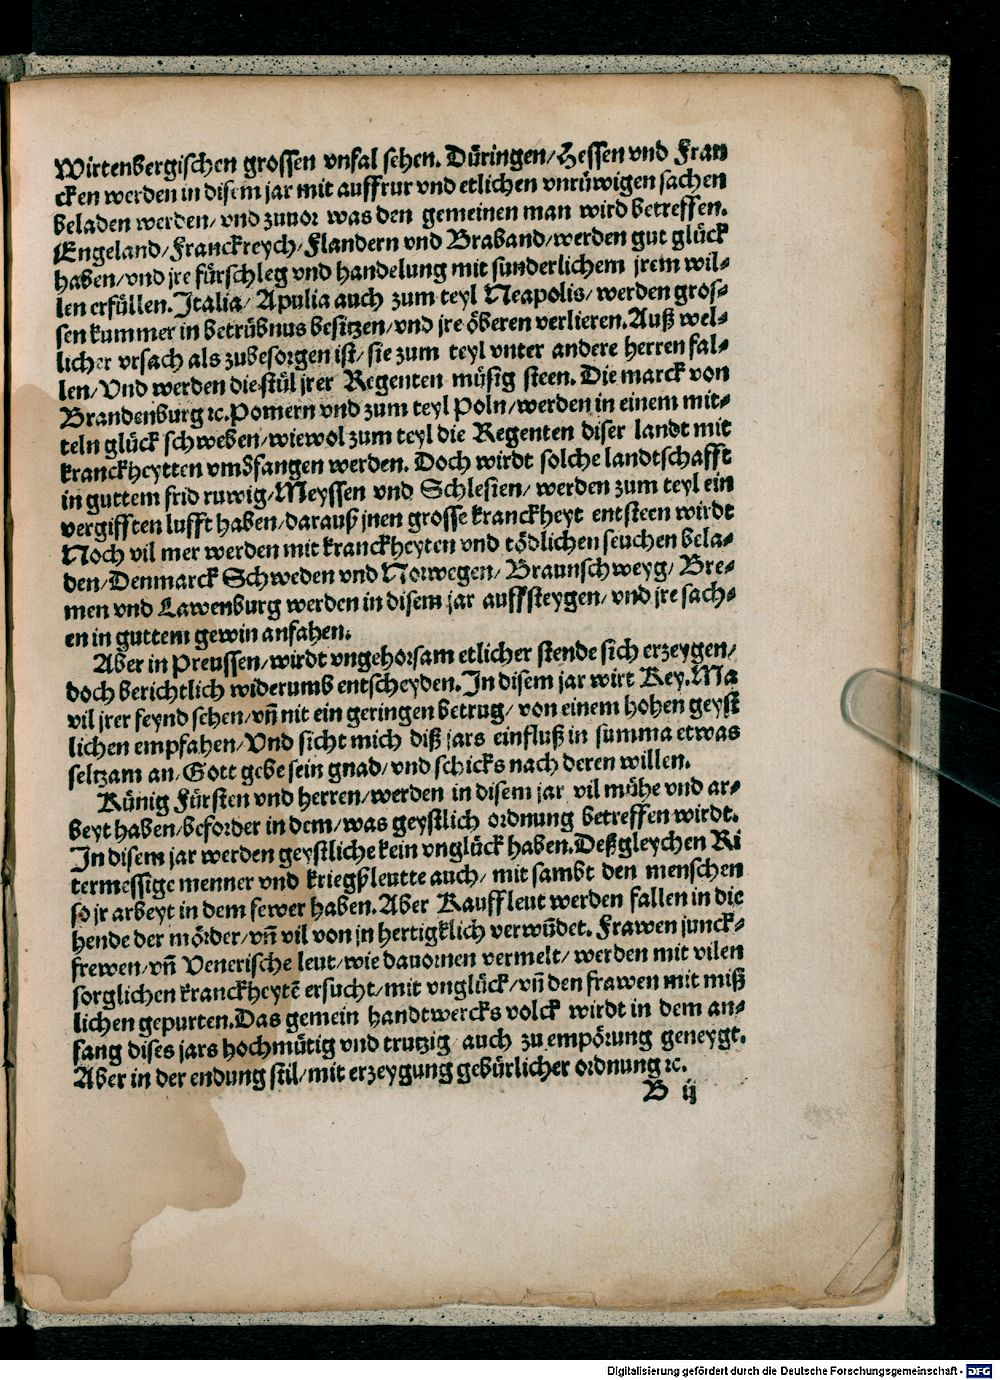 Wirtenbergischen grossen vnfal sehen. Düringen/ Hessen vnd Fran
cken werden in disem jar mit auffrur vnd etlichen vnrüwigen sachen
beladen werden/ vnd zuuor was den gemeinen man wird betreffen.
Engeland/ Franckreych/ Flandern vnd Braband/ werden gut glück
haben/ vnd jre fürschleg vnd handelung mit sunderlichem jrem wil-
len erfüllen. Italia/ Apulia auch zum teyl Neapolis/ werden gros-
sen kummer in betrübnus besitzen/ vnd jre öberen verlieren. Auß wel-
licher vrsach als zubesorgen ist/ sie zum teyl vnter andere herren fal-
len/ Vnd werden die stül jrer Regenten müsig steen. Die marck von
Brandenburg ꝛc. Pomern vnd zum teyl Poln/ werden in einem mit-
teln glück schweben/ wiewol zum teyl die Regenten diser landt mit
kranckheytten vmbfangen werden. Doch wirdt solche landtschafft
in guttem frid ruwig/ Meyssen vnd Schlesien/ werden zum teyl ein
vergifften lufft haben/ darauß jnen grosse kranckheyt entsteen wirdt
Noch vil mer werden mit kranckheyten vnd tödlichen seuchen bela-
den/ Denmarck Schweden vnd Norwegen/ Braunschweyg/ Bre-
men vnd Lawenburg werden in disem jar auffsteygen/ vnd jre sach-
en in guttem gewin anfahen.
Aber in Preussen/ wirdt vngehorsam etlicher stende sich erzeygen/
doch berichtlich widerumb entscheyden. In disem jar wirt Key. Ma
vil jrer feynd sehen/ vñ nit ein geringen betrug/ von einem hohen geyst
lichen empfahen/ Vnd sicht mich diß jars einfluß in summa etwas
seltzam an/ Gott gebe sein gnad/ vnd schicks nach deren willen.
Künig Fürsten vnd herren/ werden in disem jar vil möhe vnd ar-
beyt haben/ beforder in dem/ was geystlich ordnung betreffen wirdt.
In disem jar werden geystliche kein vnglück haben. Deßgleychen Ri
termessige menner vnd kriegßleutte auch/ mit sambt den menschen
so jr arbeyt in dem fewer haben. Aber Kauffleut werden fallen in die
hende der mörder/ vñ vil von jn hertigklich verwũdet. Frawen junck-
frewen/ vñ Venerische leut/ wie dauornen vermelt/ werden mit vilen
sorglichen kranckheytẽ ersucht/ mit vnglück/ vñ den frawen mit miß
lichen gepurten. Das gemein handtwercks volck wirdt in dem an-
fang dises jars hochmütig vnd trutzig/ auch zu empörung geneygt.
Aber in der endung stil/ mit erzeygung gebürlicher ordnung ꝛc.
B ij
Digitalisierung gefördert durch die Deutsche Forschungsgemeinschaft - DFG